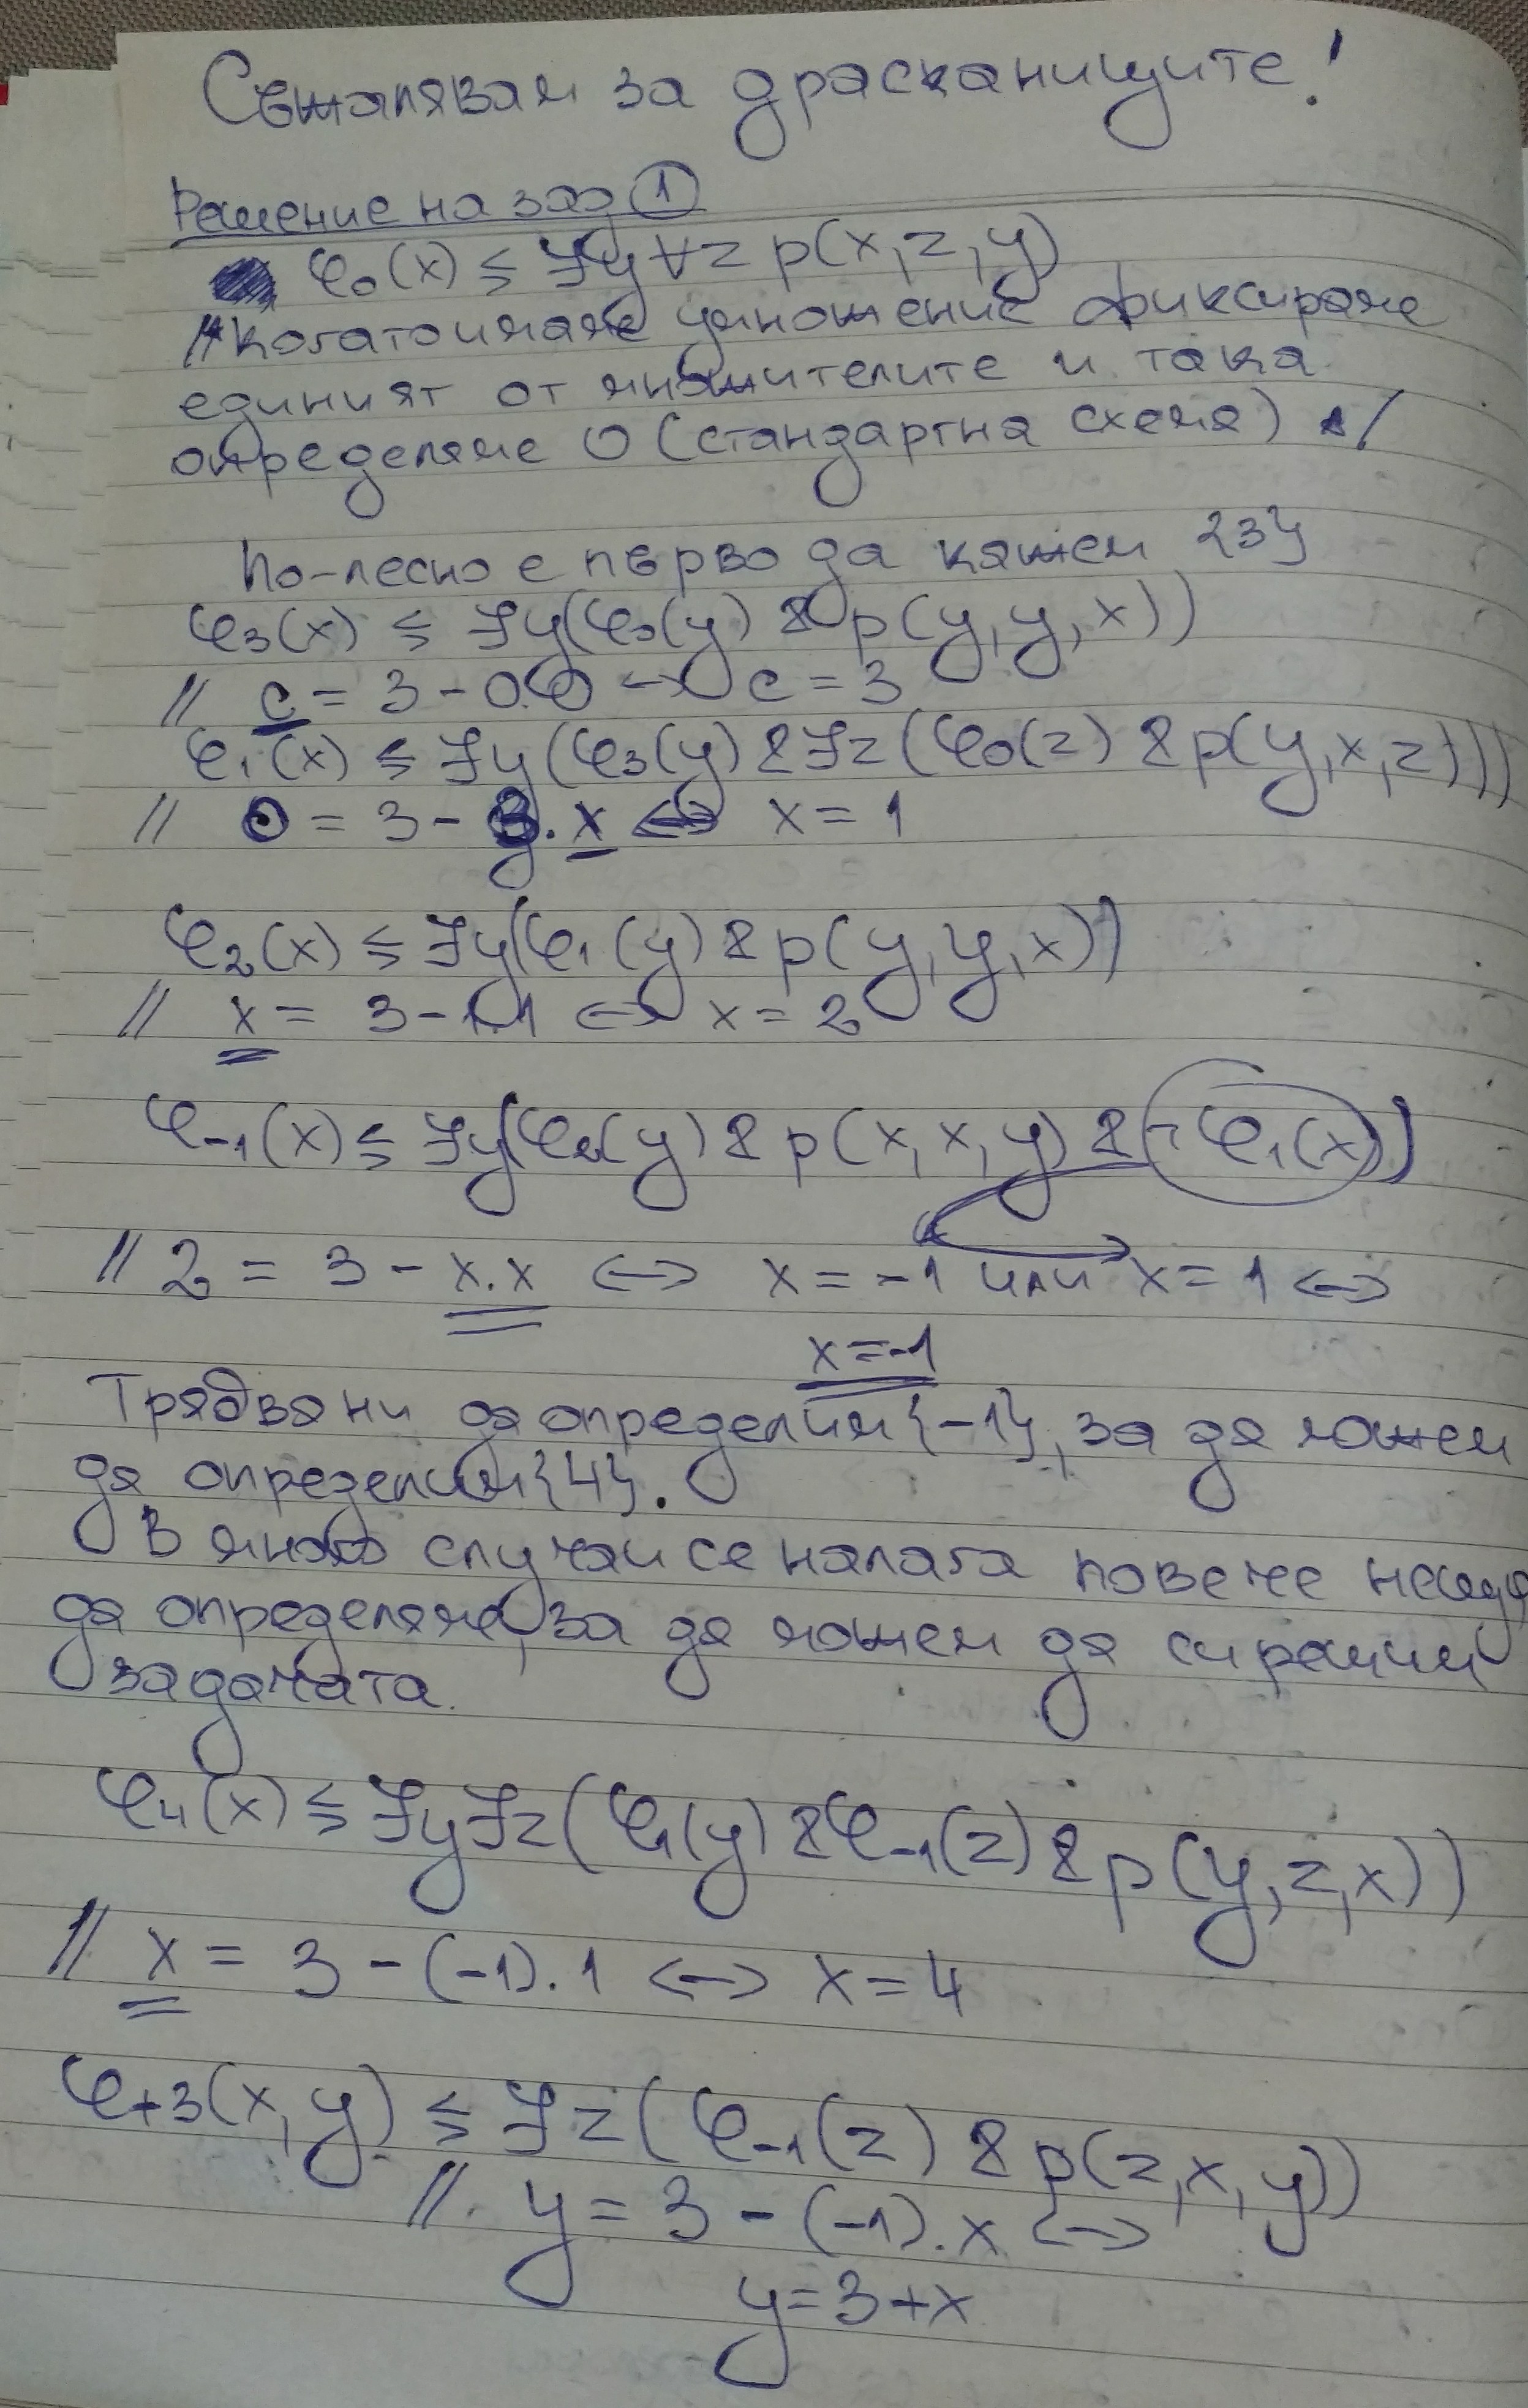 Съжалявам за драсканиците!
Решение на зад ①
φ₀(x) ≤ ∃y∀z p(x,z,y)
// Когато имаме умножение фиксираме
единият от множителите и така
определяме 0 (стандартна схема) //
По-лесно е първо да кажем {3}
φ₃(x) ≤ ∃y(φ₀(y) & p(y,y,x))
// c = 3 - 0.0 ↔ c = 3
φ₁(x) ≤ ∃y(φ₃(y) & ∃z(φ₀(z) & p(y,x,z)))
// 0 = 3 - 3.x ↔ x = 1
φ₂(x) ≤ ∃y(φ₁(y) & p(y,y,x))
// x = 3 - 1.1 ↔ x = 2
φ₋₁(x) ≤ ∃y(φ₂(y) & p(x,x,y) & ¬φ₁(x))
// 2 = 3 - x.x ↔ x = -1 или x = 1 ↔
x = -1
Трябва ни да определим {-1}, за да можем
да определим {4}.
В много случаи се налага повече неща
да определяме, за да можем да си решим
задачата.
φ₄(x) ≤ ∃y∃z(φ₁(y) & φ₋₁(z) & p(y,z,x))
// x = 3 - (-1).1 ↔ x = 4
φ₊₃(x,y) ≤ ∃z(φ₋₁(z) & p(z,x,y))
// y = 3 - (-1).x ↔
y = 3 + x